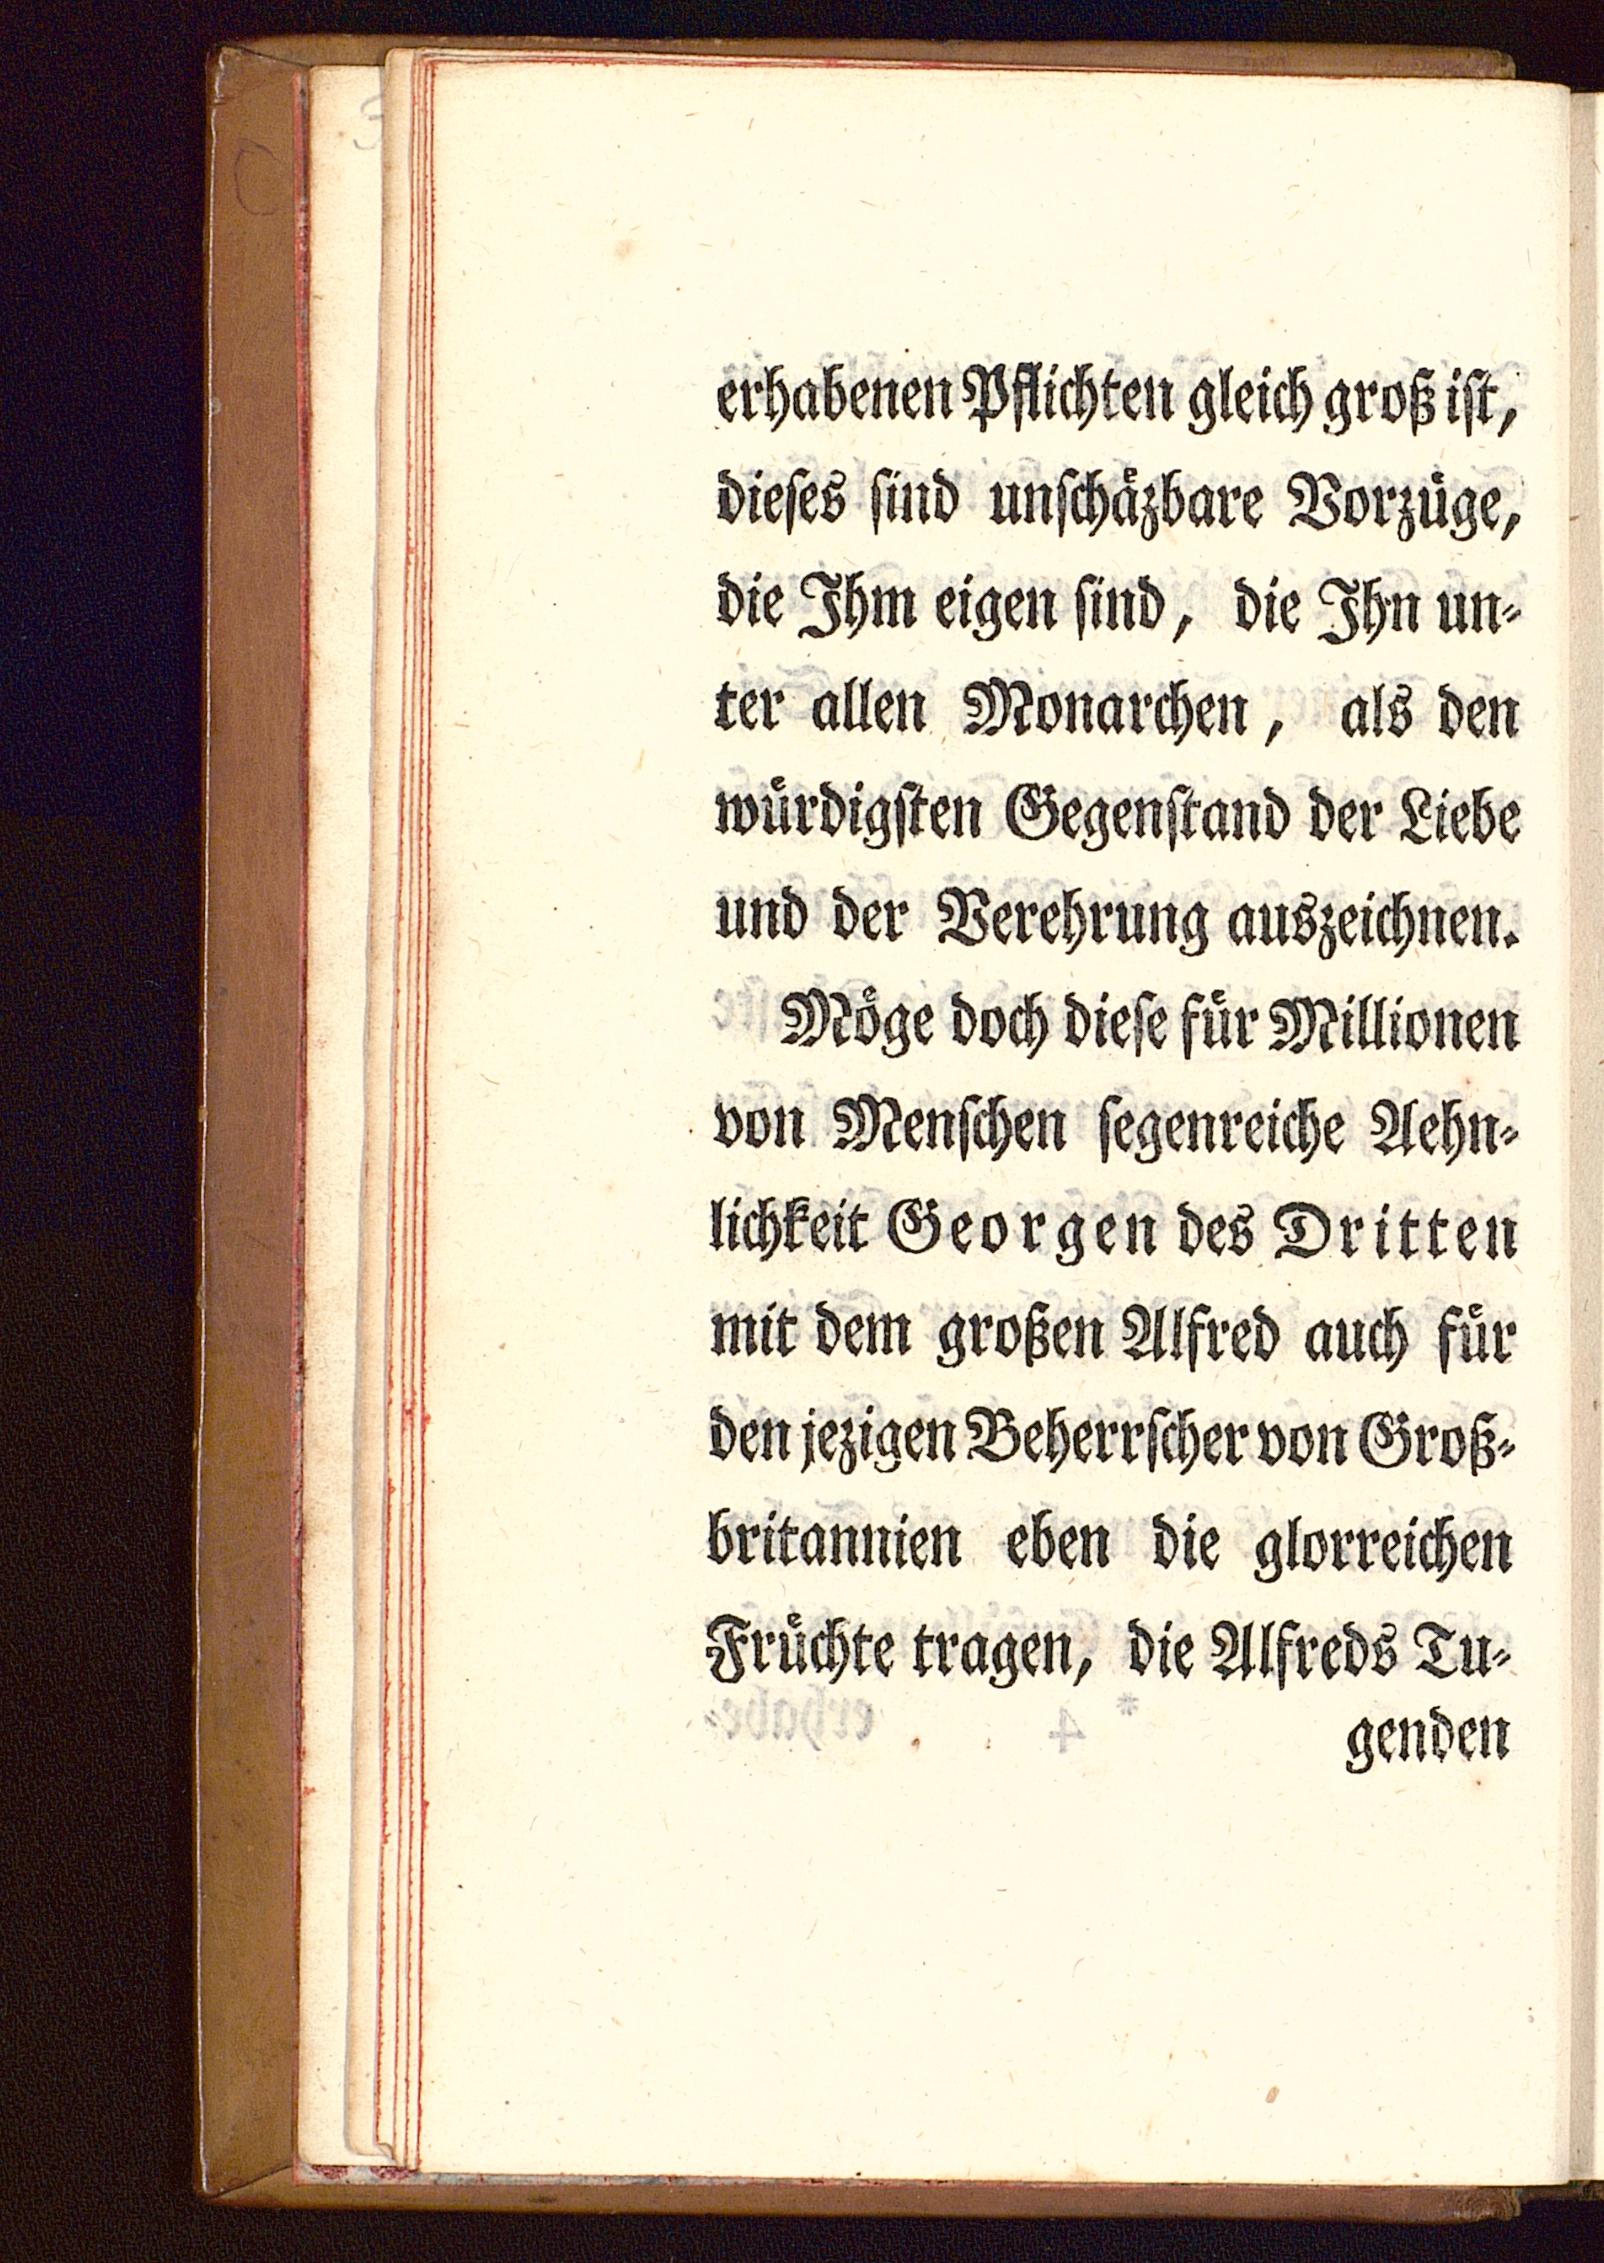 erhabenen Pflichten gleich groß ist,
dieses sind unschäzbare Vorzüge,
die Ihm eigen sind, die Ihn un-
ter allen Monarchen, als den
würdigsten Gegenstand der Liebe
und der Verehrung auszeichnen.
Möge doch diese für Millionen
von Menschen segenreiche Aehn-
lichkeit Georgen des Dritten
mit dem großen Alfred auch für
den jezigen Beherrscher von Groß-
britannien eben die glorreichen
Früchte tragen, die Alfreds Tu-
genden